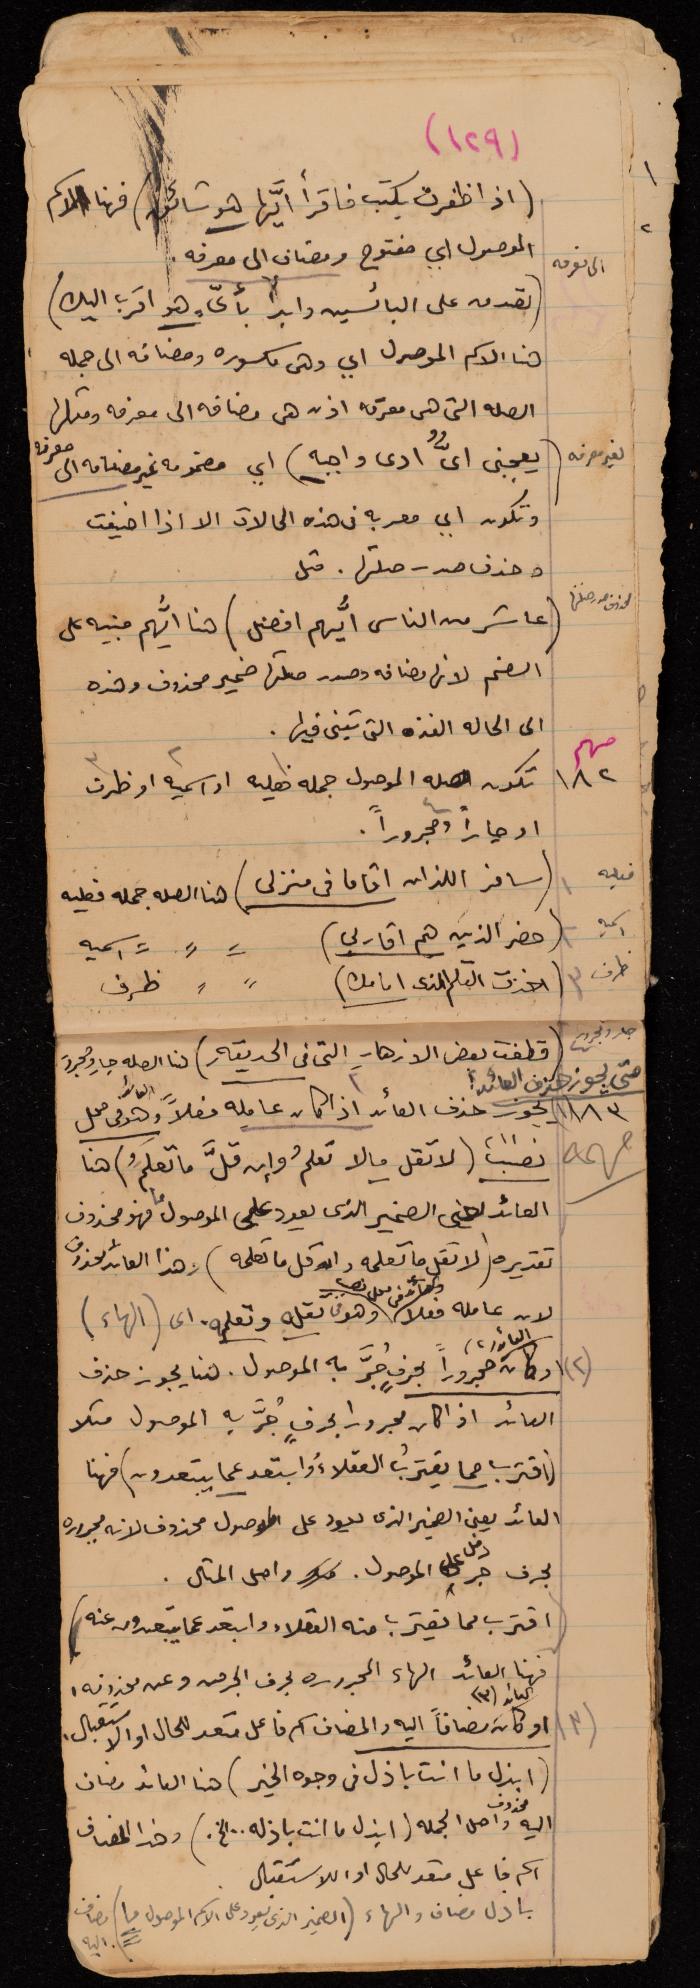 (١٢٩)
(اذا ظفرت بكتب فاقرأ أيَّها هو شائق) فهنا الاسم
الموصول اي مفتوح ومضاف الى معرفه .
الى معرفه
(تصدق على البائسين وابدأ بأيٍّ هو اقرب اليك)
هنا الاسم الموصول اي وهي مكسوره ومضافه الى جمله
الصله التي هي معرفه اذن هي مضافه الى معرفه ومثلها
لغير معرفه (يعجبني ايٌّ ادى واجبه) اي مضمومه غير مضافه الى معرفه
وتكون اي معربه في هذه الحالات الا اذا اضيفت
وحذف صدر صلتها . مثل
محذوف صدر صلتها (عاشر من الناس أيُّهم افضل) هنا ايُّهم مبنيه على
الضم لانها مضافه وصدر صلتها ضمير محذوف وهذه
الى الحاله الفذه التي تبنى فيها .
مهم
١٨٢ تكون صله الموصول جمله فعليه او اسميه او ظرف
او جاراً ومجروراً .
فعليه ١ (سافر اللذان اقاما في منزلي) هنا الصله جمله فعليه
اسميه ٢ (حضر الذين هم اقاربي) = = = اسميه
ظرف ٣ (اخذت القلم الذي امامك) " " ظرف
جار ومجرور (قطفت بعض الازهار التي في الحديقه) هنا الصله جار ومجرور
متى يجوز حذف العائد؟
١٨٣ ١ يجوز حذف العائد اذا كان عامله فعلاً وهو في محل
نصب (لا تقل ما لا تعلمُ وإن قلَّ ما تعلمُ) هنا
العائد يعني الضمير الذي يعود على الموصول ما فهو محذوف
تقديره (لا تقل ما تعلمه وان قل ما تعلمه) وهذا العائد محذوف
لان عامله فعلا وهو تقله وتعلمه . اي (الهاء)
(٢) او كان العائد مجروراً بحرفٍ جُرَّ به الموصول . هنا يجوز حذف
العائد اذا كان مجرورا بحرفٍ جُرَّ به الموصول مثلا
(اقترب مما يقتربُ العقلاءُ وابتعد عما يبتعدون) فهنا
العائد يعني الضمير الذي يعود على الموصول محذوف لانه مجروره
بحرف جر دخل على الموصول . واصل المثال .
(اقترب مما يقترب منه العقلاء وابتعد عما يبتعدون عنه)
فهنا العائد الهاء المجروره بحرف الجر من وعن محذوفه .
(٣) او كان العائد مضافاً اليه والمضاف اسم فاعل متعد للحال او الاستقبال .
(ابذل ما انت باذل في وجوه الخير) هنا العائد مضاف
اليه محذوف واصل الجمله (ابذل ما انت باذله .. الخ .) وهذا المضاف
اسم فاعل متعد للحال او الاستقبال
باذل مضاف والهاء (الضمير الذي يعود على الاسم الموصول ما) مضاف
اليه